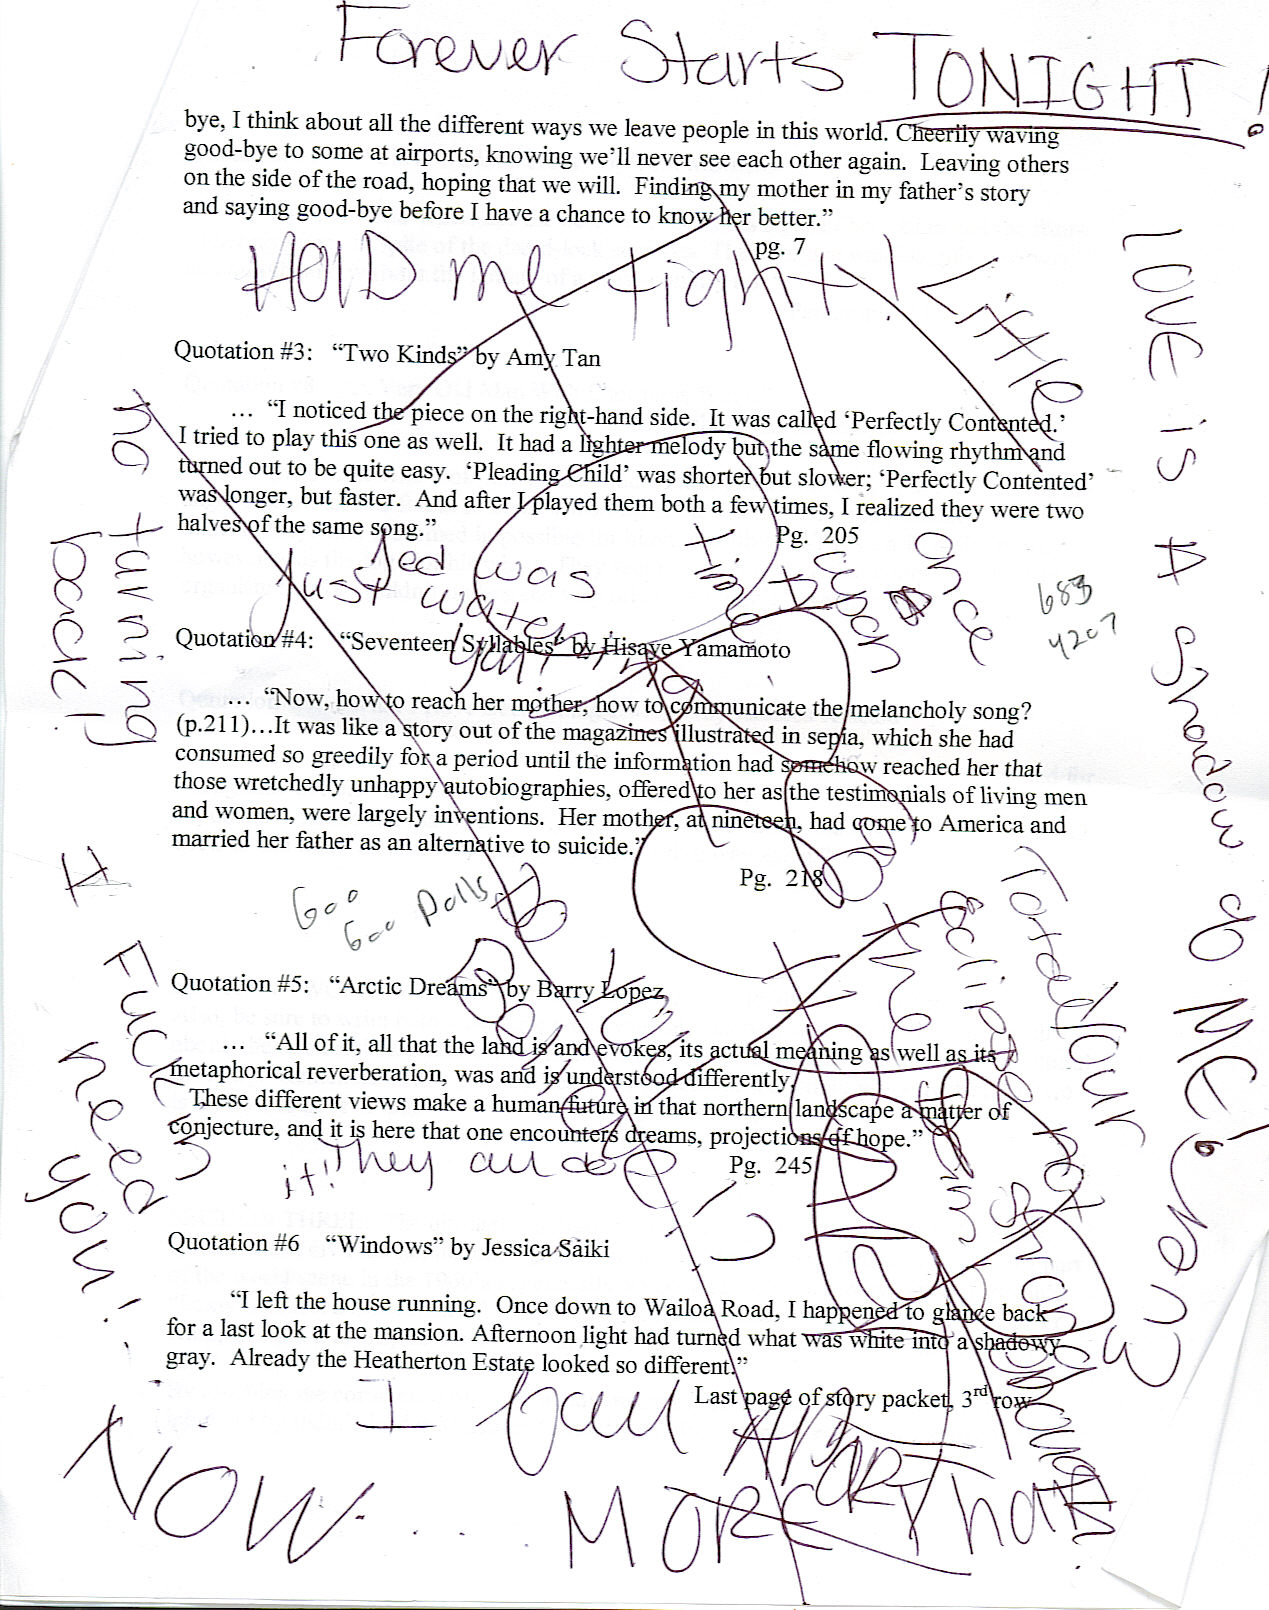 Forever Starts TONIGHT!
bye, I think about all the different ways we leave people in this world. Cheerily waving
good-bye to some at airports, knowing we'll never see each other again.  Leaving others
on the side of the road, hoping that we will.  Finding my mother in my father's story
and saying good-bye before I have a chance to know her better."
pg. 7
HOlD me tight!
Little
LOVE is A Shadow do ME!
Quotation #3:   "Two Kinds" by Amy Tan
… "I noticed the piece on the right-hand side.  It was called 'Perfectly Contented.'
I tried to play this one as well.  It had a lighter melody but the same flowing rhythm and
turned out to be quite easy.  'Pleading Child' was shorter but slower; 'Perfectly Contented'
was longer, but faster.  And after I played them both a few times, I realized they were two
halves of the same song."
Pg.  205
no turning
back!
once
upon
A
time
Jed was
Just
683
4207
Quotation #4:    "Seventeen Syllables" by Hisaye Yamamoto
…  "Now, how to reach her mother, how to communicate the melancholy song?
(p.211)…It was like a story out of the magazines illustrated in sepia, which she had
consumed so greedily for a period until the information had somehow reached her that
those wretchedly unhappy autobiographies, offered to her as the testimonials of living men
and women, were largely inventions.  Her mother, at nineteen, had come to America and
married her father as an alternative to suicide."
Pg.  218
Goo
Goo Dolls
I Fuckin
need
you!
Total
eclipse
of
the
Quotation #5:   "Arctic Dreams" by Barry Lopez
…   "All of it, all that the land is and evokes, its actual meaning as well as its
metaphorical reverberation, was and is understood differently.
These different views make a human future in that northern landscape a matter of
conjecture, and it is here that one encounters dreams, projections of hope."
Pg.  245
They all do
it!
Your not
strong
enough
Quotation #6    "Windows" by Jessica Saiki
"I left the house running.  Once down to Wailoa Road, I happened to glance back
for a last look at the mansion. Afternoon light had turned what was white into a shadowy
gray.  Already the Heatherton Estate looked so different."
Last page of story packet, 3rd row
I fall APART
NOW...
MORE Than